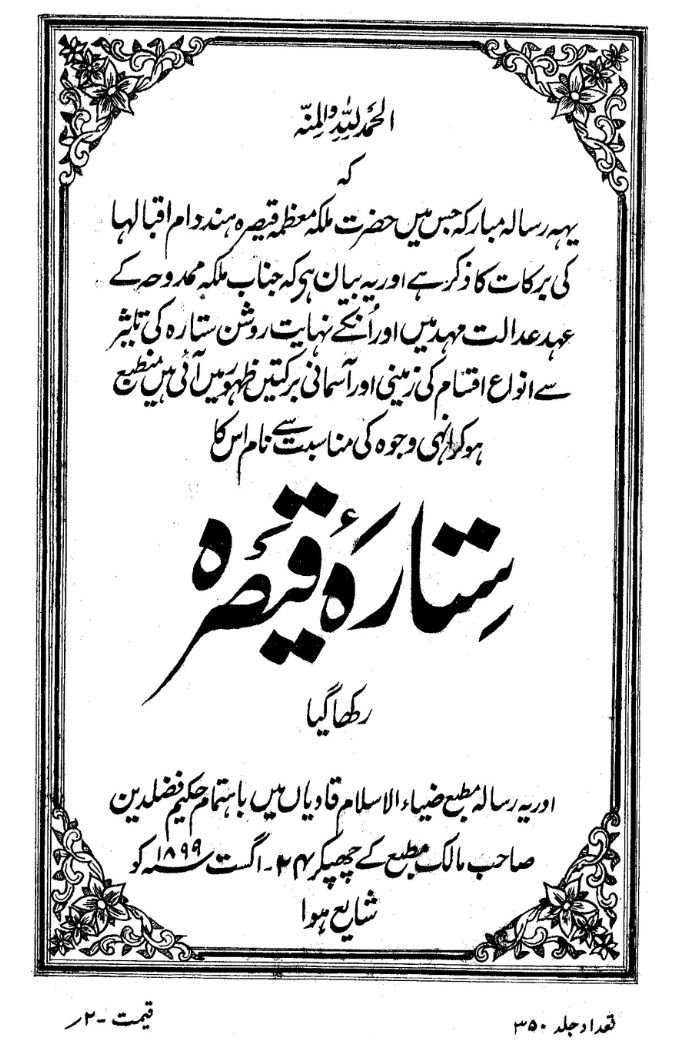 الحمد للہ والمنہ
کہ
یہہ رسالہ مبارکہ جس میں حضرت ملکہ معظمہ قیصرہ ہند دام اقبالہا
کی برکات کا ذکر ہے اور یہ بیان ہی کہ جناب ملکہ ممدوحہ کے
عہد عدالت مہد میں اور اُنکے نہایت روشن ستارہ کی تاثیر
سے انواع اقسام کی زمینی اور آسمانی برکتیں ظہور میں آئی ہیں منطبع
ہوکر انہی وجوہ کی مناسبت سے نام اس کا
سِتارَہٴ قَیصَرہ
رکھا گیا
اور یہ رسالہ مطبع ضیاء الاسلام قادیاں میں باہتمام حکیم فضلدین
صاحب مالک مطبع کے چھپکر ۲۴۔اگست ۱۸۹۹ کو
شایع ہوا
تعداد جلد ۳۵۰
قیمت -۲؍